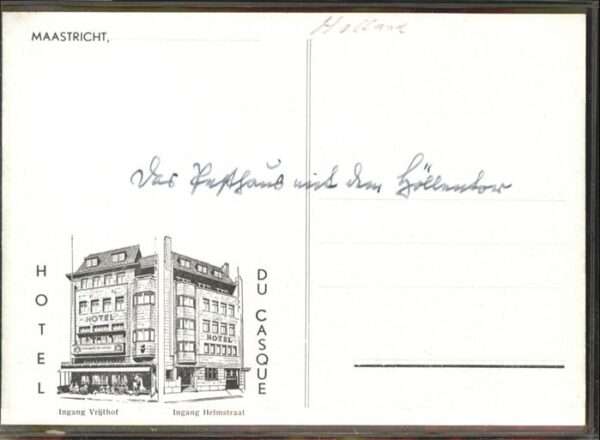 MAASTRICHT,
Holland
Das Pesthaus mit dem Höllentor
HOTEL
DU CASQUE
HOTEL
HOTEL
Ingang Vrijthof
Ingang Helmstraat